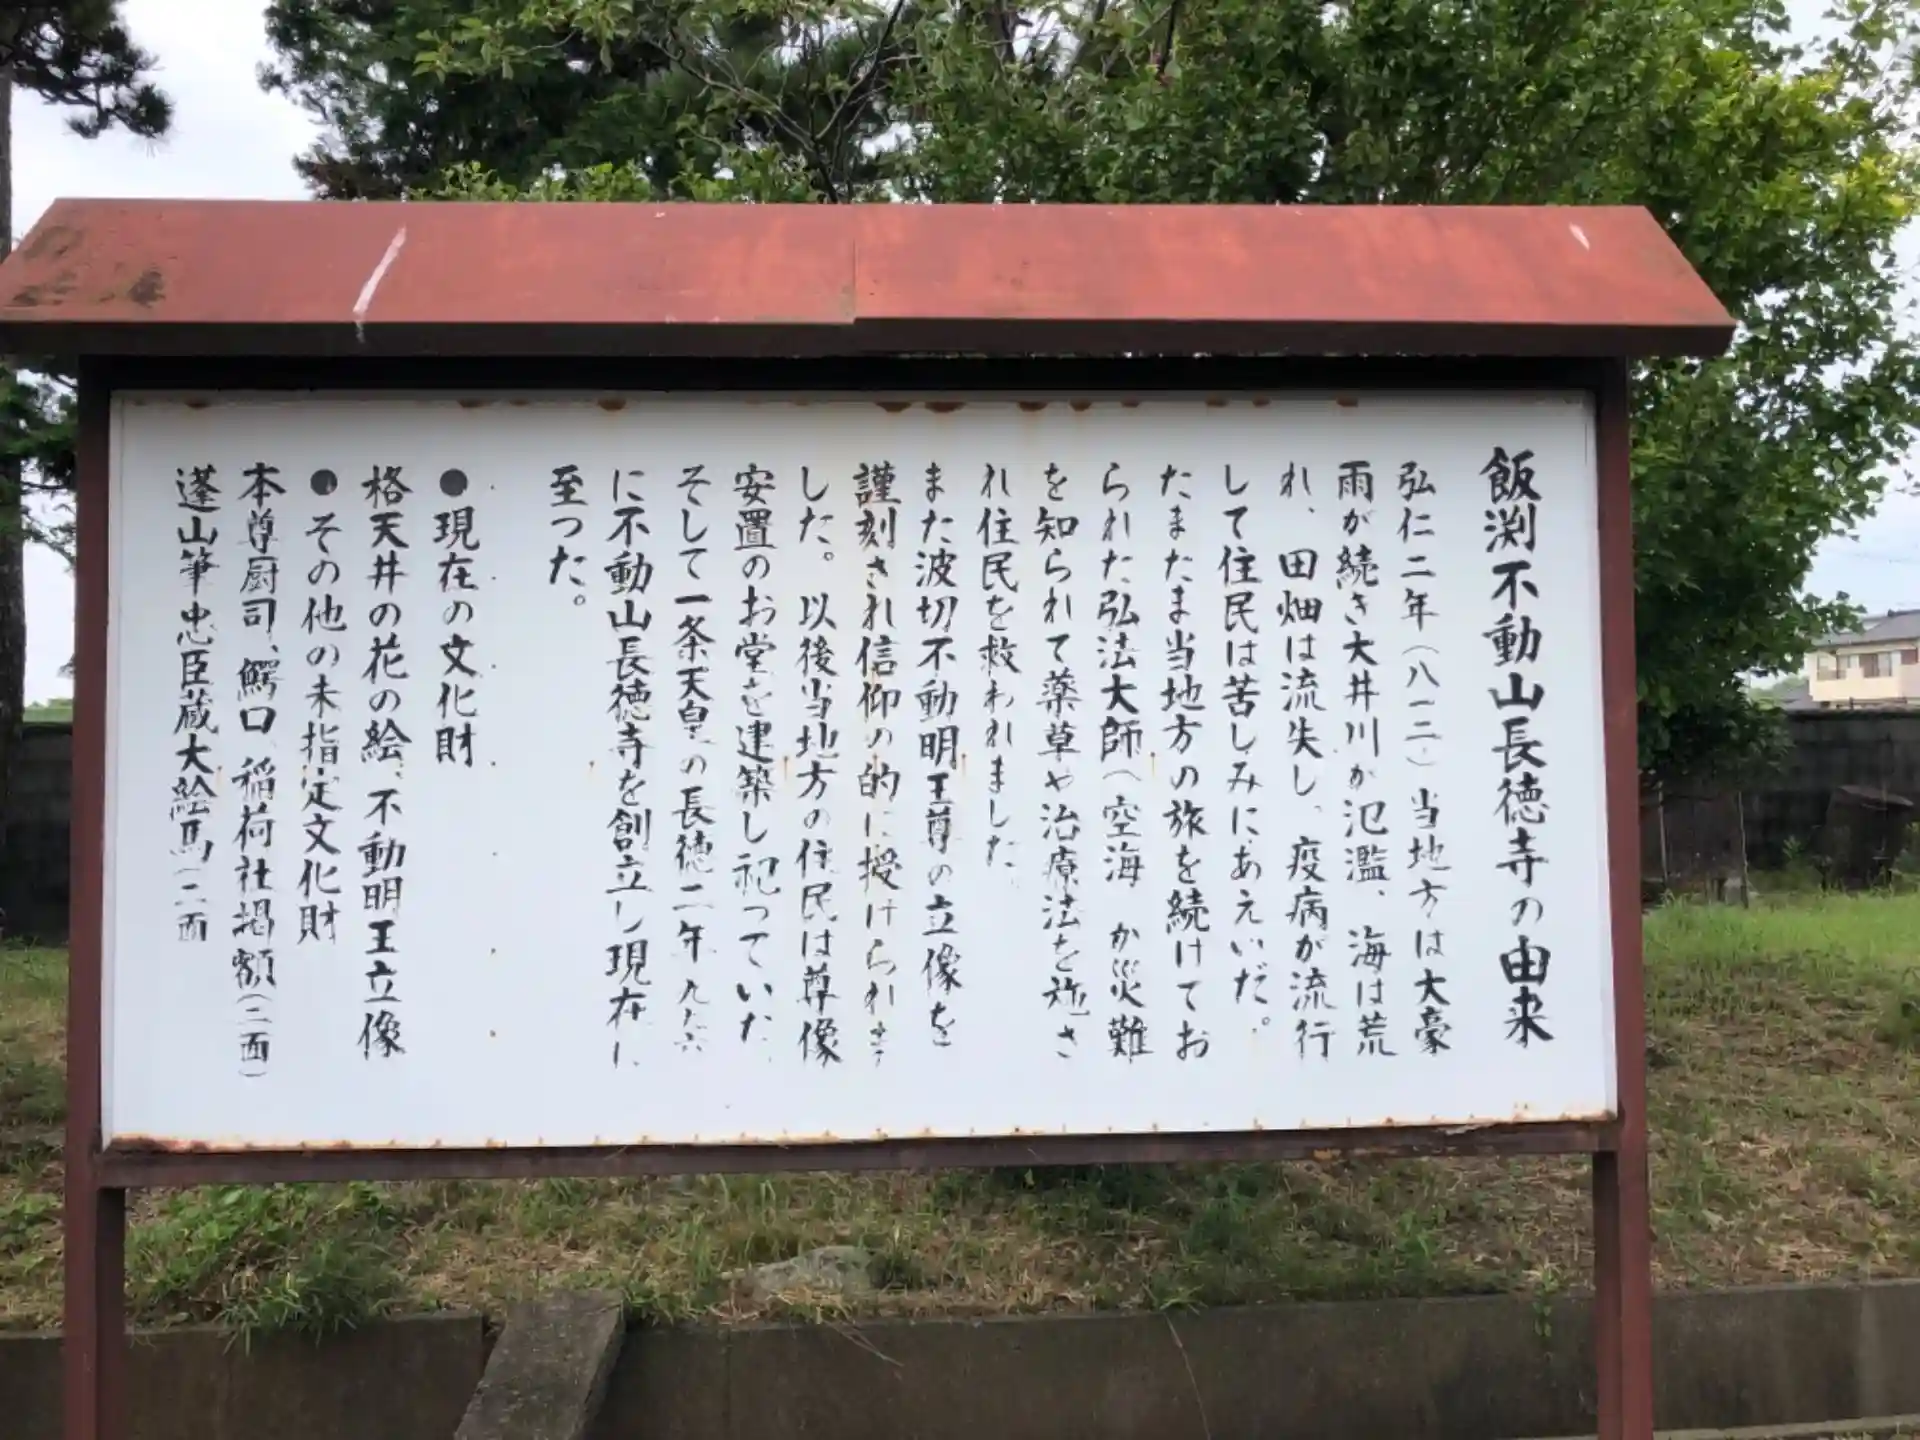 飯渕不動山長徳寺の由来
弘仁二年（八一二）当地方は大豪
雨が続き大井川が氾濫、海は荒
れ、田畑は流失し、疫病が流行
して住民は苦しみにあえいだ。
たまたま当地方の旅を続けてお
られた弘法大師（空海 が災難
を知られて薬草や治療法を施さ
れ住民を救われました
また波切不動明王尊の立像を
謹刻され信仰の的に授けられま
した。以後当地方の住民は尊像
安置のお堂を建築し祀っていた
そして一条天皇の長徳二年 九九六
に不動山長徳寺を創立し現在に
至った。
●現在の文化財
格天井の花の絵、不動明王立像
●その他の未指定文化財
本尊厨司、鰐口 稲荷社掲額（二面）
蓬山筆忠臣蔵大絵馬（二面